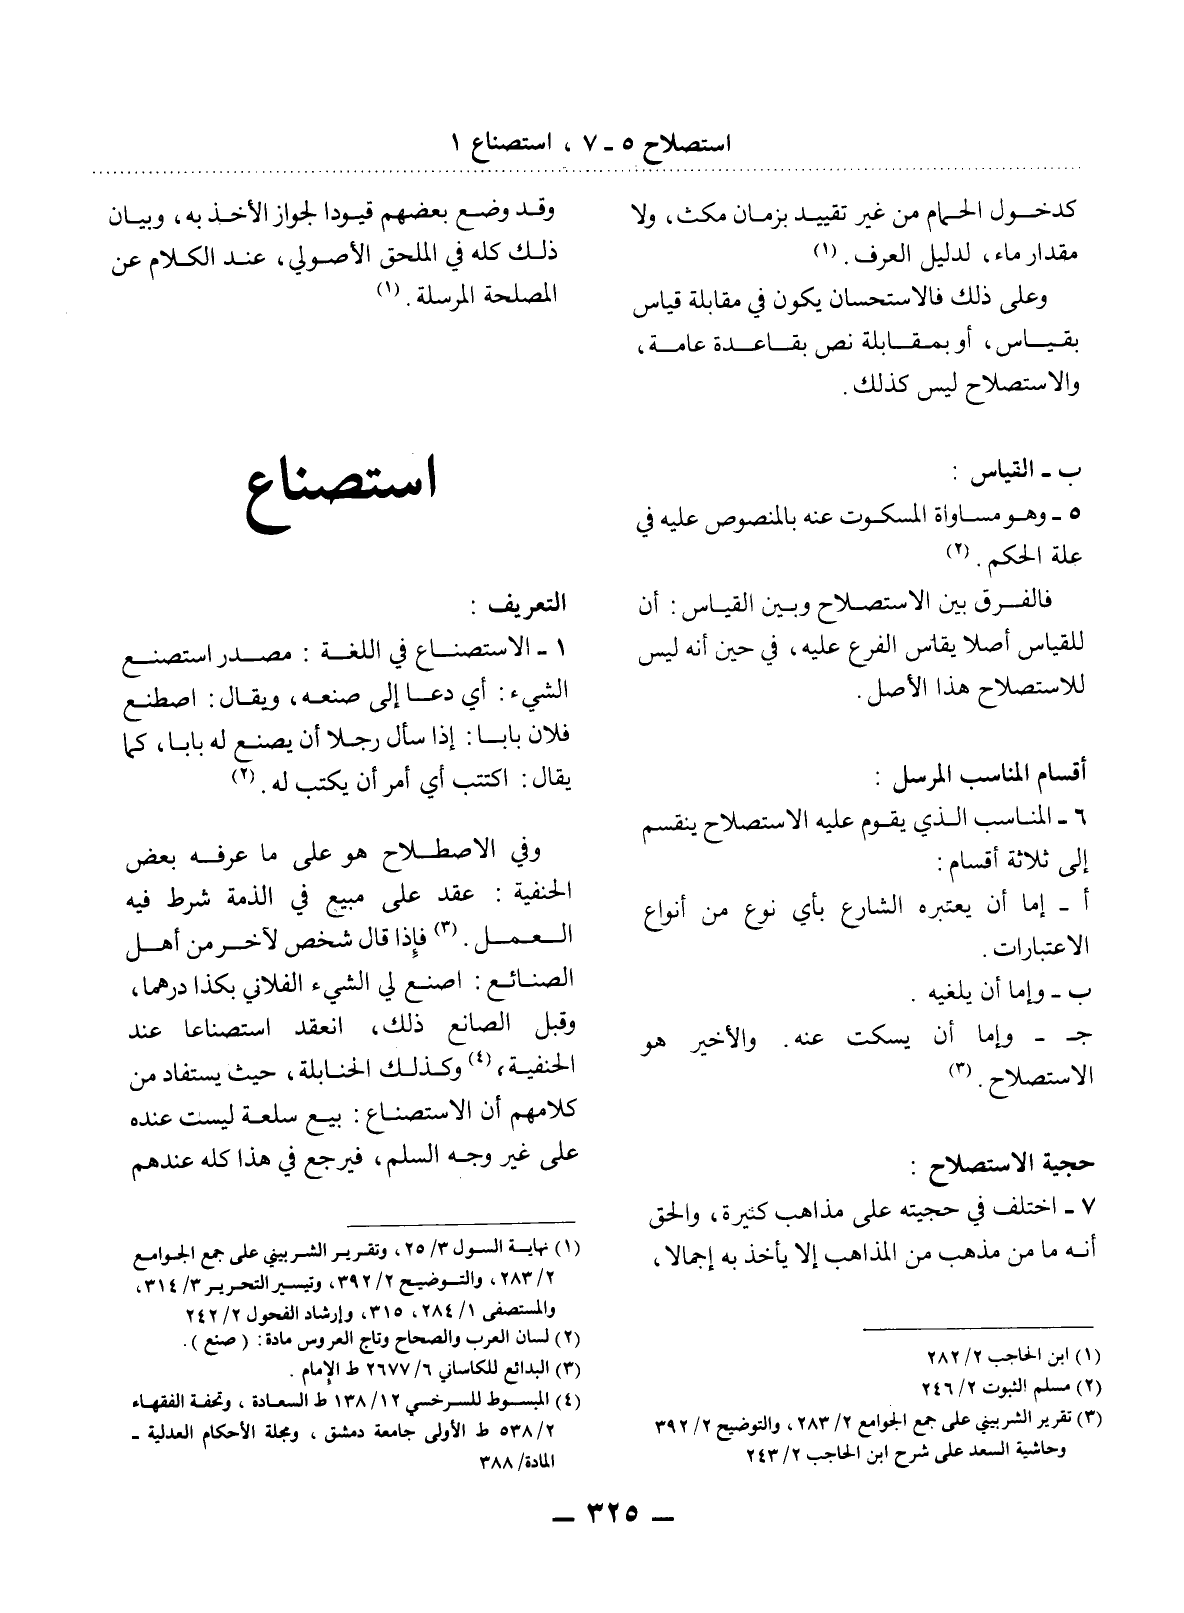 استصلاح ٥ ـ ٧ ، استصناع ١
كدخول الحمام من غير تقييد بزمان مكث، ولا
مقدار ماء، لدليل العرف . (١)
وعلى ذلك فالاستحسان يكون في مقابلة قياس
بقياس، أو بمقابلة نص بقاعدة عامة،
والاستصلاح ليس كذلك .
ب ـ القياس :
٥ ـ وهو مساواة المسكوت عنه بالمنصوص عليه في
علة الحكم . (٢)
فالفرق بين الاستصلاح وبين القياس : أن
للقياس أصلا يقاس الفرع عليه، في حين أنه ليس
للاستصلاح هذا الأصل .
أقسام المناسب المرسل :
٦ ـ المناسب الذي يقوم عليه الاستصلاح ينقسم
إلى ثلاثة أقسام :
أ ـ إما أن يعتبره الشارع بأي نوع من أنواع
الاعتبارات .
ب ـ وإما أن يلغيه .
جـ ـ وإما أن يسكت عنه. والأخير هو
الاستصلاح . (٣)
حجية الاستصلاح :
٧ ـ اختلف في حجيته على مذاهب كثيرة، والحق
أنه ما من مذهب من المذاهب إلا يأخذ به إجمالا،
(١) ابن الحاجب ٢/ ٢٨٢
(٢) مسلم الثبوت ٢/ ٢٤٦
(٣) تقرير الشربيني على جمع الجوامع ٢/ ٢٨٣، والتوضيح ٢/ ٣٩٢
وحاشية السعد على شرح ابن الحاجب ٢/ ٢٤٣
وقد وضع بعضهم قيودا لجواز الأخذ به، وبيان
ذلك كله في الملحق الأصولي، عند الكلام عن
المصلحة المرسلة . (١)
استصناع
التعريف :
١ ـ الاستصناع في اللغة : مصدر استصنع
الشيء : أي دعا إلى صنعه، ويقال : اصطنع
فلان بابا : إذا سأل رجلا أن يصنع له بابا، كما
يقال : اكتتب أي أمر أن يكتب له . (٢)
وفي الاصطلاح هو على ما عرفه بعض
الحنفية : عقد على مبيع في الذمة شرط فيه
العمل . (٣) فإذا قال شخص لآخر من أهل
الصنائع : اصنع لي الشيء الفلاني بكذا درهما،
وقبل الصانع ذلك، انعقد استصناعا عند
الحنفية، (٤) وكذلك الحنابلة، حيث يستفاد من
كلامهم أن الاستصناع : بيع سلعة ليست عنده
على غير وجه السلم، فيرجع في هذا كله عندهم
(١) نهاية السول ٣/ ٢٥، وتقرير الشربيني على جمع الجوامع
٢/ ٢٨٣، والتوضيح ٢/ ٣٩٢، وتيسير التحرير ٣/ ٣١٤،
والمستصفى ١/ ٢٨٤، ٣١٥، وإرشاد الفحول ٢/ ٢٤٢
(٢) لسان العرب والصحاح وتاج العروس مادة : ( صنع ) .
(٣) البدائع للكاساني ٦/ ٢٦٧٧ ط الإمام .
(٤) المبسوط للسرخسي ١٢/ ١٣٨ ط السعادة ، وتحفة الفقهاء
٢/ ٥٣٨ ط الأولى جامعة دمشق ، ومجلة الأحكام العدلية ـ
المادة/ ٣٨٨
ـ ٣٢٥ ـ